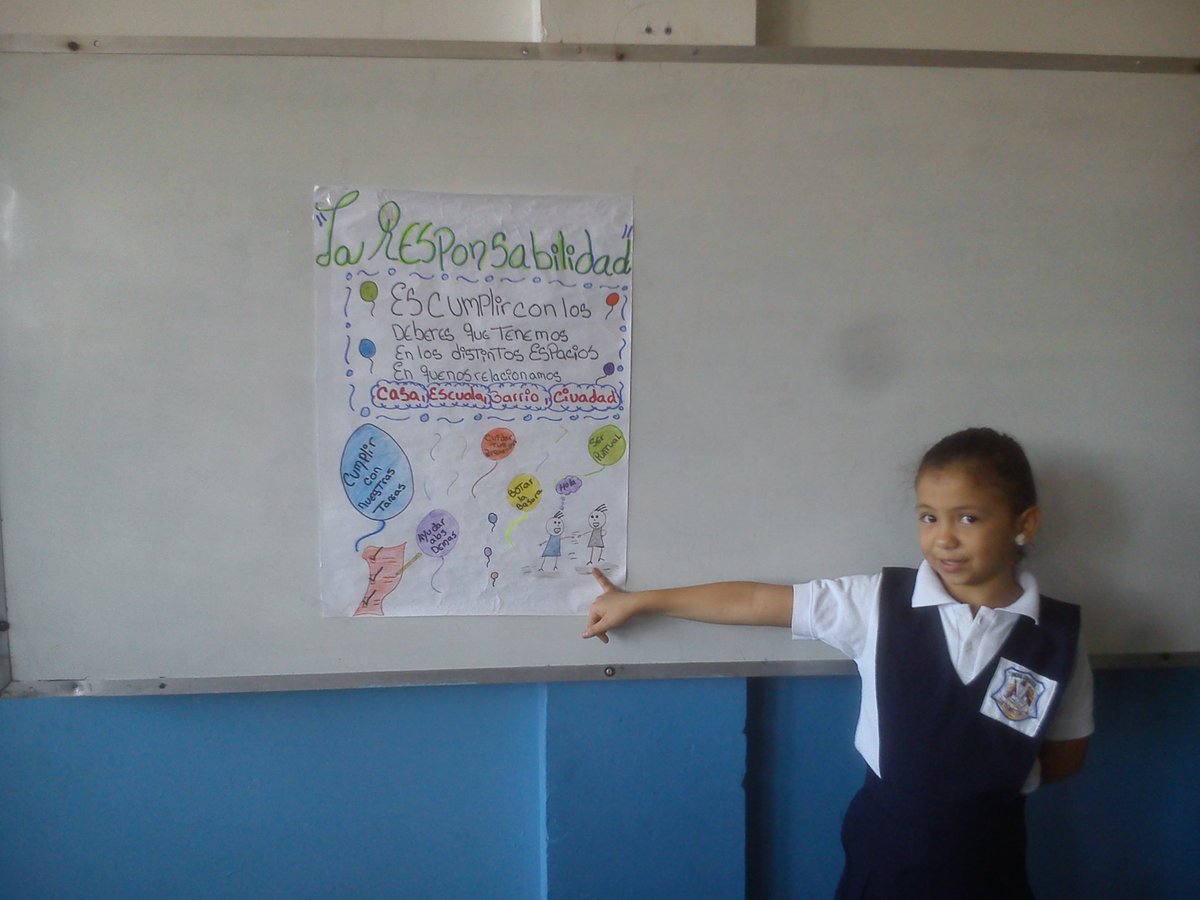 "La Responsabilidad"
Es cumplir con los
Deberes que Tenemos
En los distintos Espacios
En que nos relacionamos
Casa, Escuala, Barrio, Ciuadad
Cumplir
con
nuestras
Tareas
Cuidar
tus
Ser
Puntual
Botar
la
Basura
Hola
Ayudar
a los
Demas